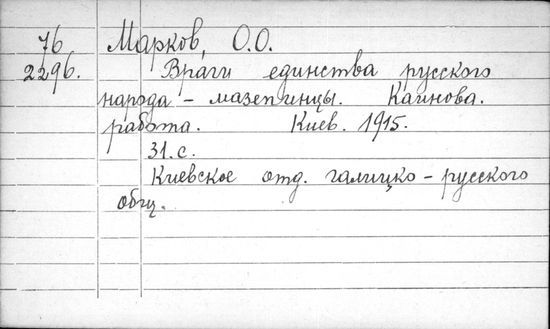 76 Марков, О.О.
2296. Враги единства русского
народа - мазепинцы. Каинова.
работа. Киев. 1915.
31.с.
Киевское отд. галицко - русского
общ.